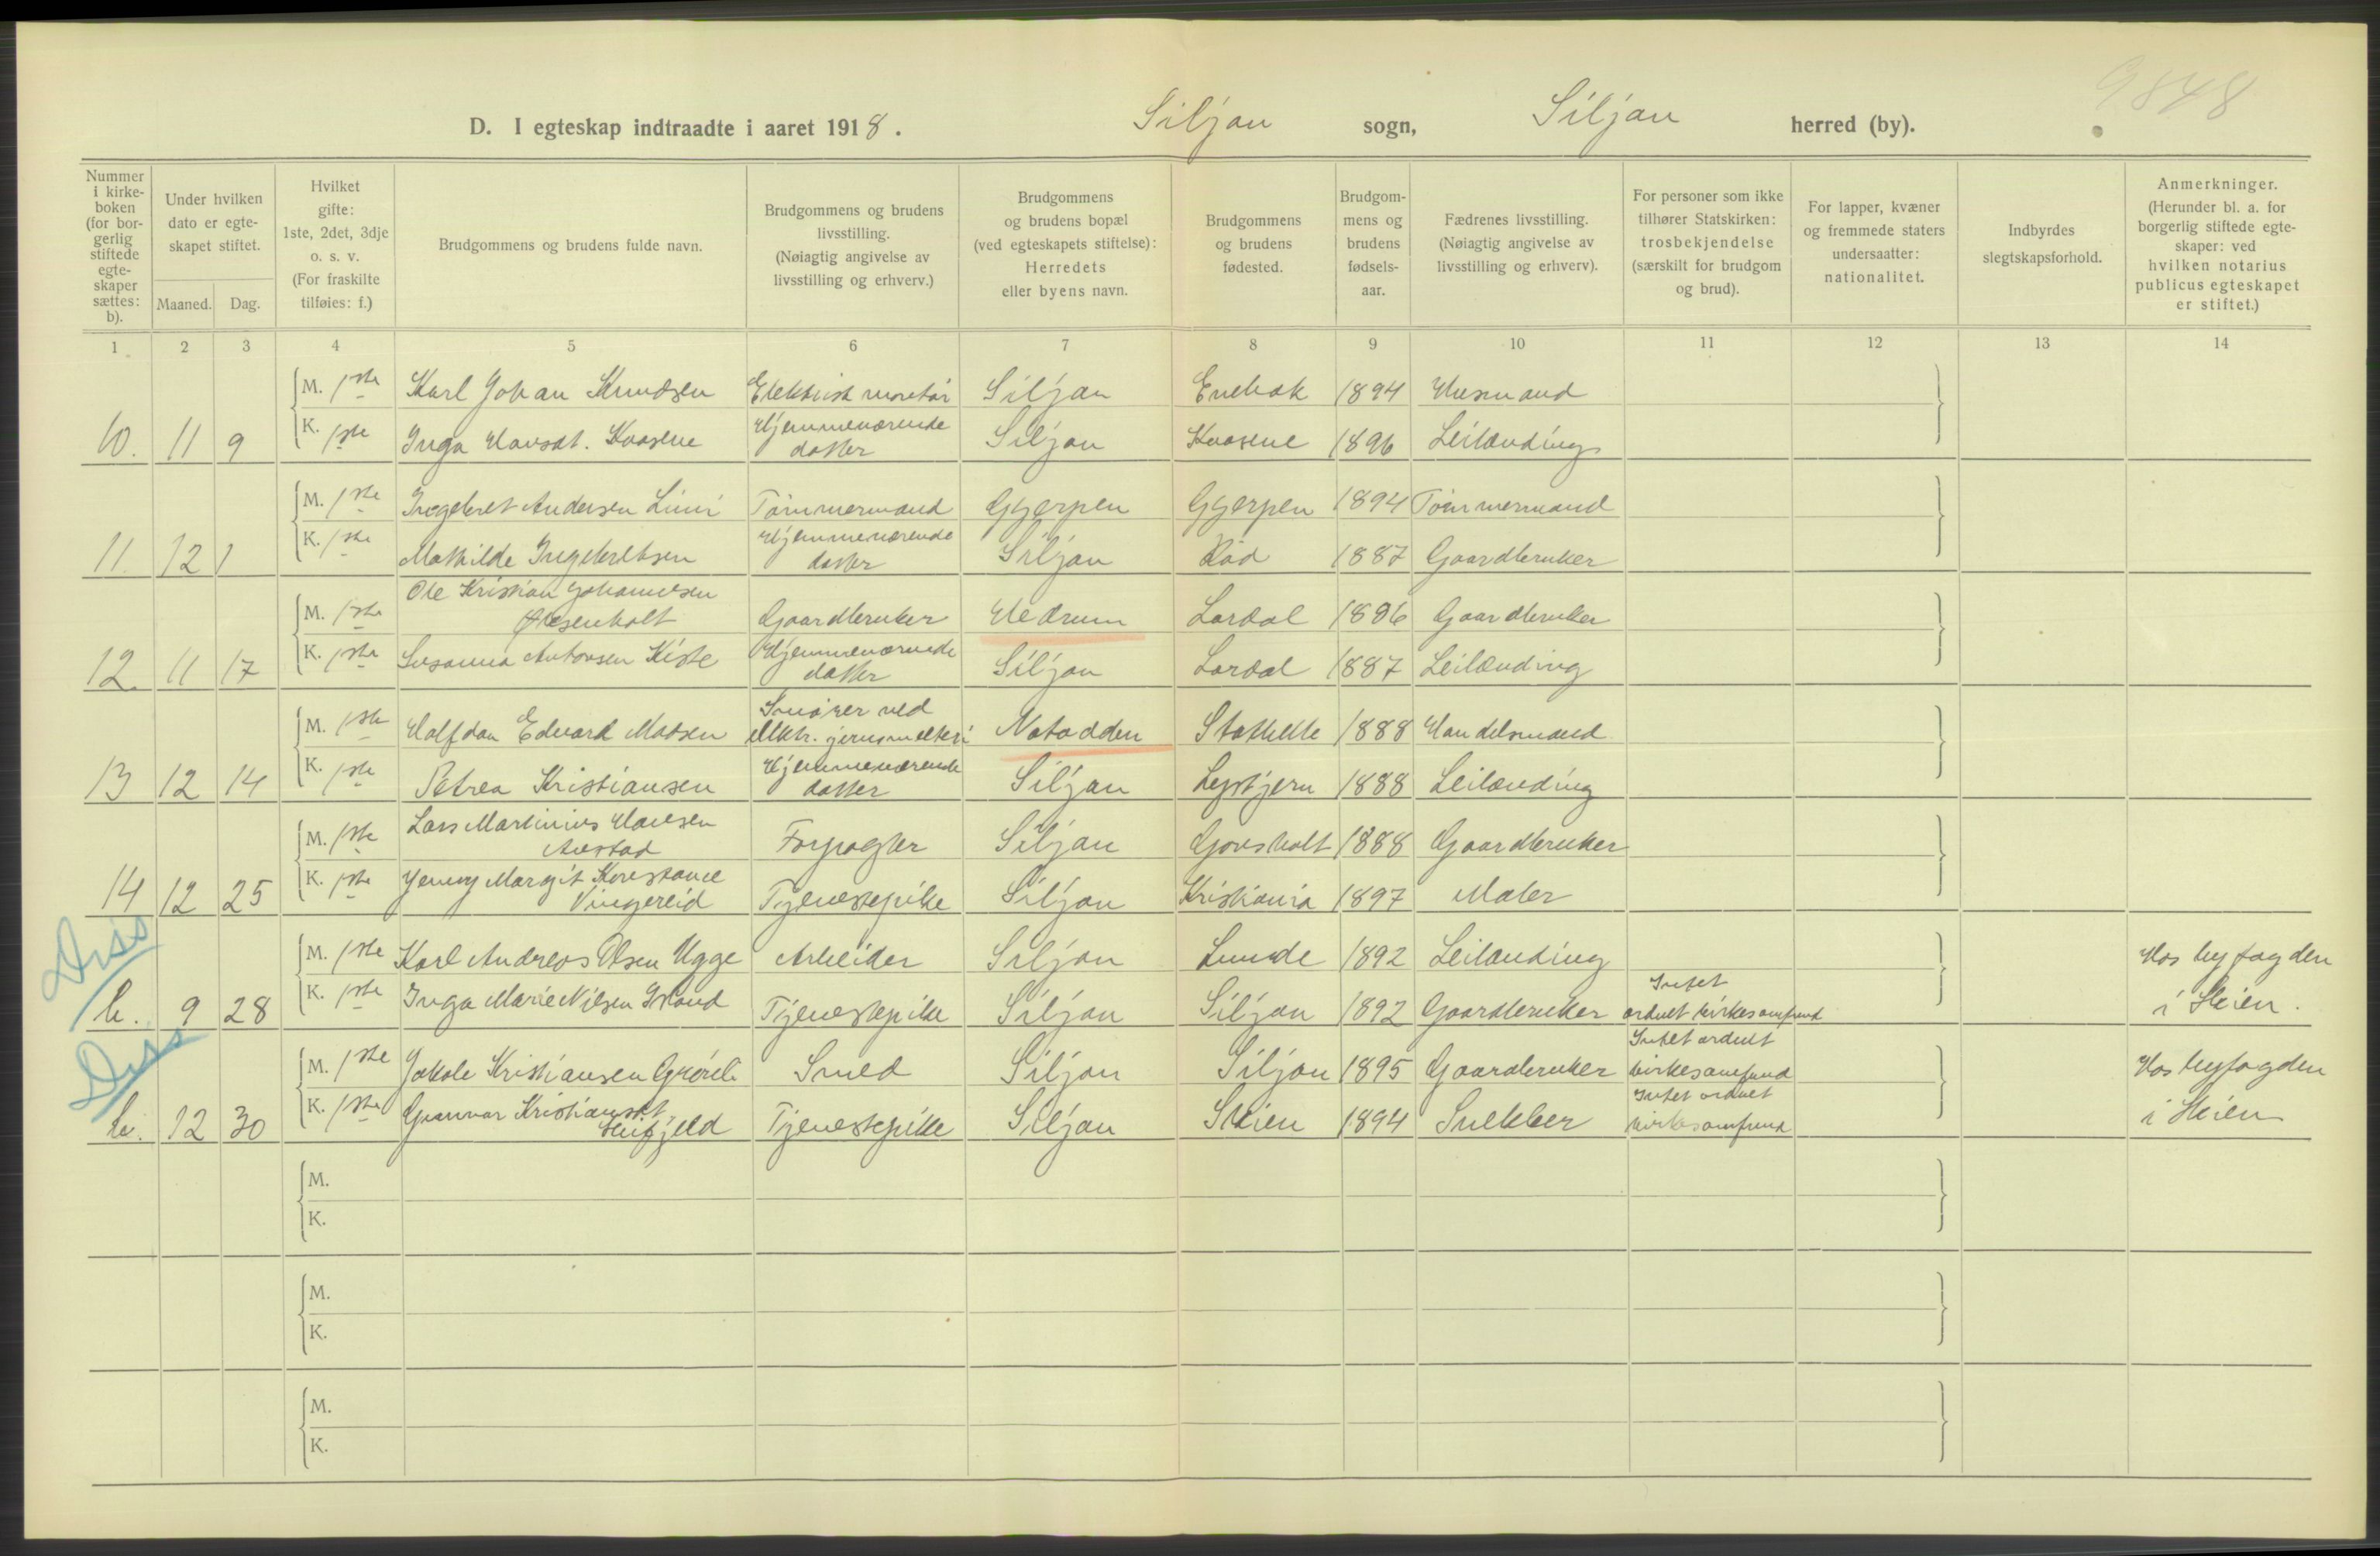 9848
D. I egteskap indtraadte i aaret 1918. Siljan sogn, Siljan herred (by).
Nummer i kirke-boken (for bor-gerlig stiftede egte-skaper sættes: b).
Under hvilken dato er egte-skapet stiftet.
Maaned. Dag.
Hvilket gifte: 1ste, 2det, 3dje o. s. v. (For fraskilte tilføies: f.)
Brudgommens og brudens fulde navn.
Brudgommens og brudens livsstilling. (Nøiagtig angivelse av livsstilling og erhverv.)
Brudgommens og brudens bopæl (ved egteskapets stiftelse): Herredets eller byens navn.
Brudgommens og brudens fødested.
Brudgom-mens og brudens fødsels-aar.
Fædrenes livsstilling. (Nøiagtig angivelse av livsstilling og erhverv).
For personer som ikke tilhører Statskirken: trosbekjendelse (særskilt for brudgom og brud).
For lapper, kvæner og fremmede staters undersaatter: nationalitet.
Indbyrdes slegtskapsforhold.
Anmerkninger. (Herunder bl. a. for borgerlig stiftede egte-skaper: ved hvilken notarius publicus egteskapet er stiftet.)
1 2 3 4 5 6 7 8 9 10 11 12 13 14
M. 1ste Karl Johan Knudsen Elektrisk montør Siljan Enebak 1894 Husmand
10. 11 9 K. 1ste Inga Hansdt. Kvasene Hjemmeværende datter Siljan Kvasene 1896 Leilænding
M. 1ste Ingebret Andersen Limi Tømmermand Gjerpen Gjerpen 1894 Tømmermand
11. 12 1 K. 1ste Mathilde Ingebretsen Hjemmeværende datter Siljan Rød 1887 Gaardbruker
Ole Kristian Johannesen
M. 1ste Gaardbruker Hedrum Lardal 1896 Gaardbruker
12. 11 17 K. 1ste Susanna Antonsen Kiste Hjemmeværende datter Siljan Lardal 1887 Leilænding
M. 1ste Halfdan Edvard Madsen Smører ved elektr. jernsmelteri Notodden Stathelle 1888 Handelsmand
13 12 14 K. 1ste Petrea Kristiansen Hjemmeværende datter Siljan 1888 Leilænding
Lars Martinius Hansen
M. 1ste Austad Forpagter Siljan Gonsholt 1888 Gaardbruker
14 12 25 K. 1ste Jenny Margit Konstance Vingereid Tjenestepike Siljan Kristiania 1897 Maler
Diss
M. 1ste Karl Andreas Olsen Ugge Arbeider Siljan Lunde 1892 Leilænding Hos byfogden
b. 9 28 K. 1ste Inga Marie Nilsen Tjenestepike Siljan Siljan 1892 Gaardbruker Intet ordnet kirkesamfund i Skien.
Diss
M. 1ste Jakob Kristiansen Smed Siljan Siljan 1895 Gaardbruker Intet ordnet kirkesamfund Hos byfogden
b. 12 30 K. 1ste Gunvor Kristiansdt. Tjenestepike Siljan Skien 1894 Snekker Intet ordnet kirkesamfund i Skien
M.
K.
M.
K.
M.
K.